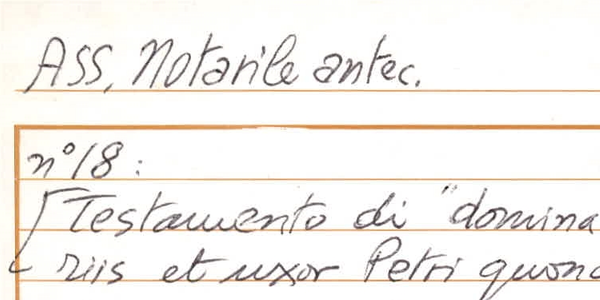 ASS. Notarile antec.
n° 18:
Testamento di "domina
riis et uxor Petri quond